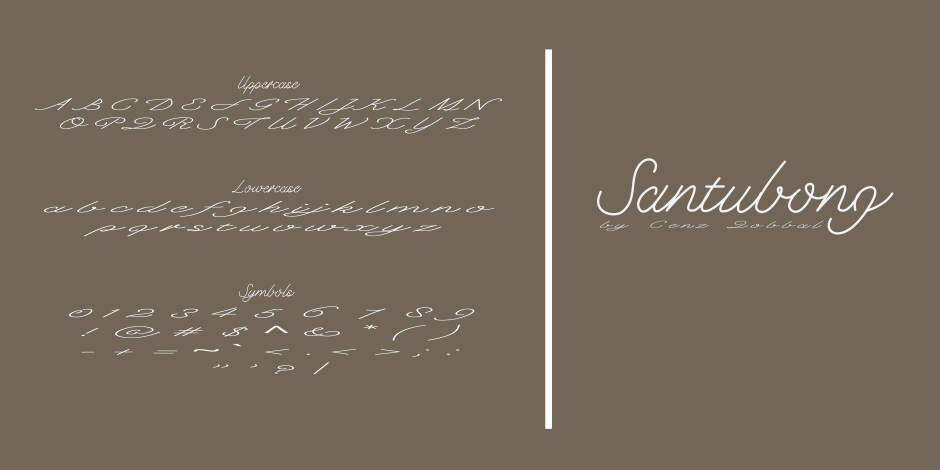 Uppercase
A B C D E F G H I J K L M N
O P Q R S T U V W X Y Z
Lowercase
a b c d e f g h i j k l m n o
p q r s t u v w x y z
Symbols
0 1 2 3 4 5 6 7 8 9
! @ # $ ^ & * ( )
- + = ~ ` < . < > ; :
” ’ ? /
Santubong
by Cenz Qobbal